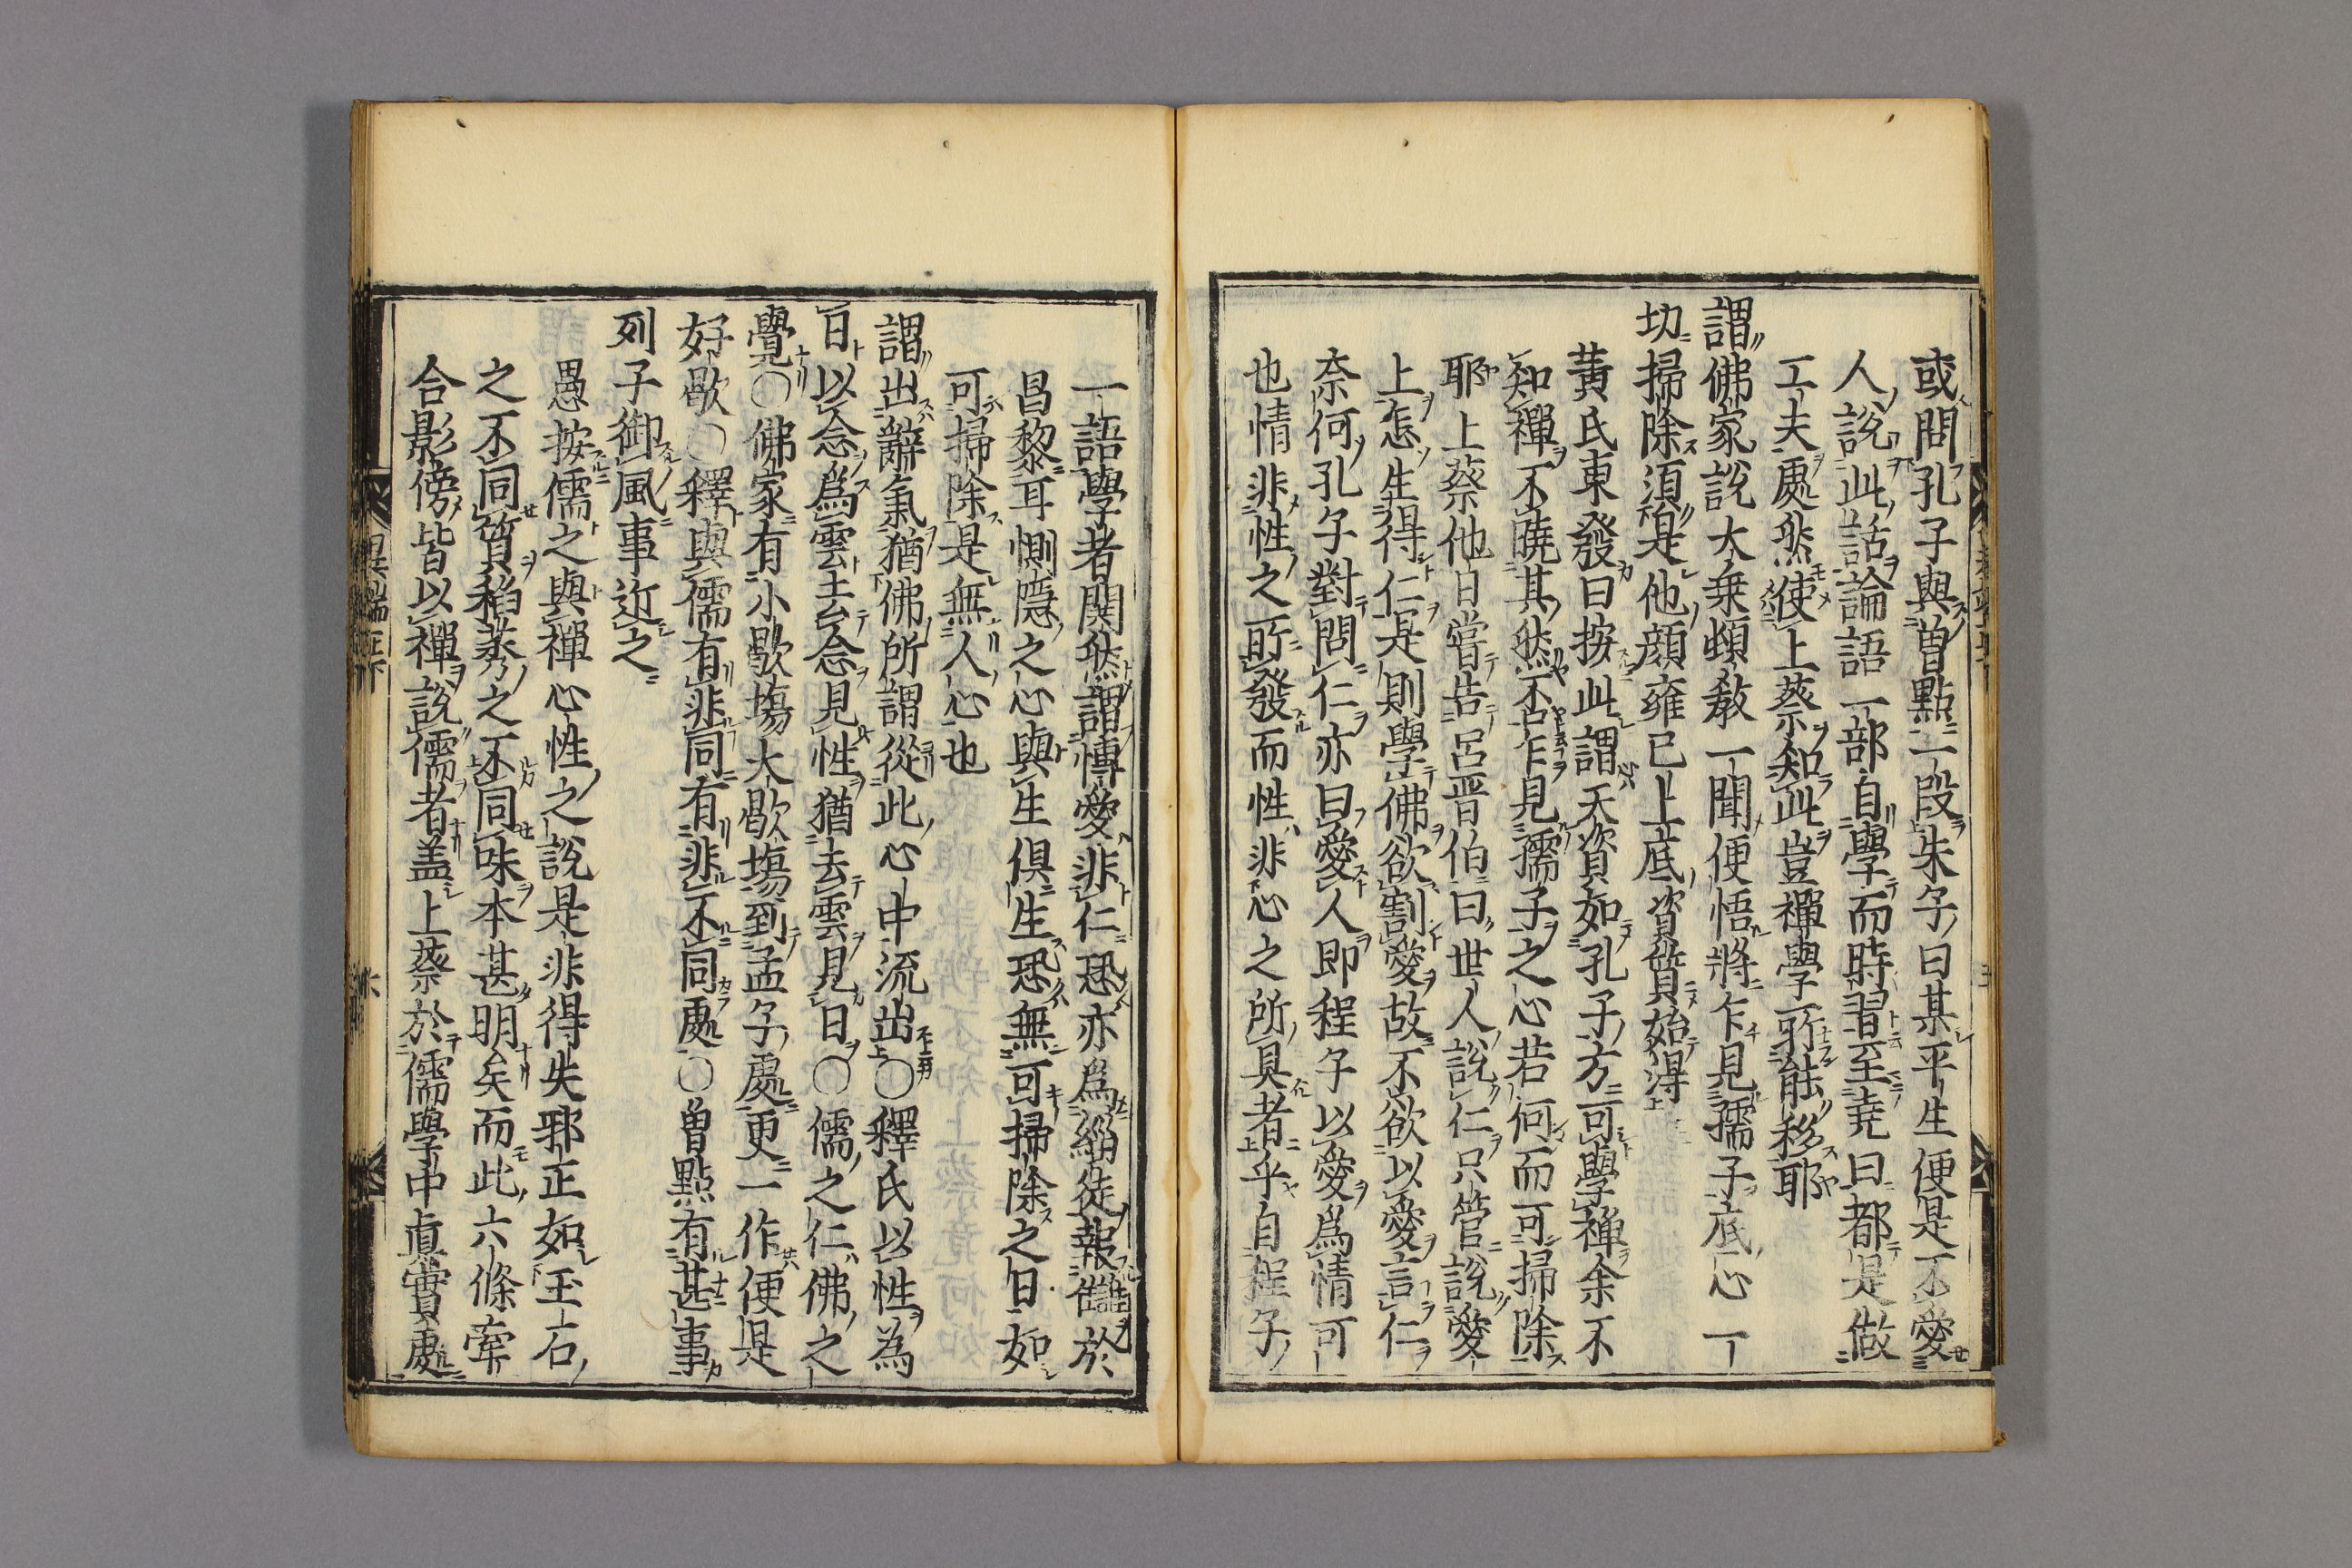 或問孔子與曽點一段朱子曰某平生便是不愛
人說此話論語一部自學而時習至堯曰都是做
工夫處然使上蔡知此豈禪學所能移耶
謂佛家說大乗頓教一聞便悟將乍見孺子底心一
切掃除須是他顔雍已上底資質始得
黄氏東發曰按此謂天資如孔子方可學禅余不
知禪不曉其然否乍見孺子之心若何而可掃除
耶上蔡他日嘗告呂晋伯曰世人說仁只管說愛
上怎生得仁是則學佛欲割愛故不欲以愛言仁
奈何孔子對問仁亦曰愛人即程子以愛爲情可
也情非性之所發而性非心之所具者乎自程子
一語學者関然謂愽愛非仁恐亦爲緇徒報讎於
昌黎耳惻隠之心與生俱生恐無可掃除之日如
可掃除是無人心也
謂出辭氣猶佛所謂從此心中流出○釋氏以性為
日以念爲雲去念見性猶去雲見日○儒之仁佛之
覺○佛家有小歇塲大歇塲到孟子處更一作便是
好歇○釋與儒有非同有非不同處○曽點有甚事
列子御風事近之
愚按儒之與禪心性之說是非得失耶正如玉石
之不同質稻莠之不同味本甚明矣而此六條牽
合影傍皆以禪說儒者盖上蔡於儒學中真實處
異端辯正下